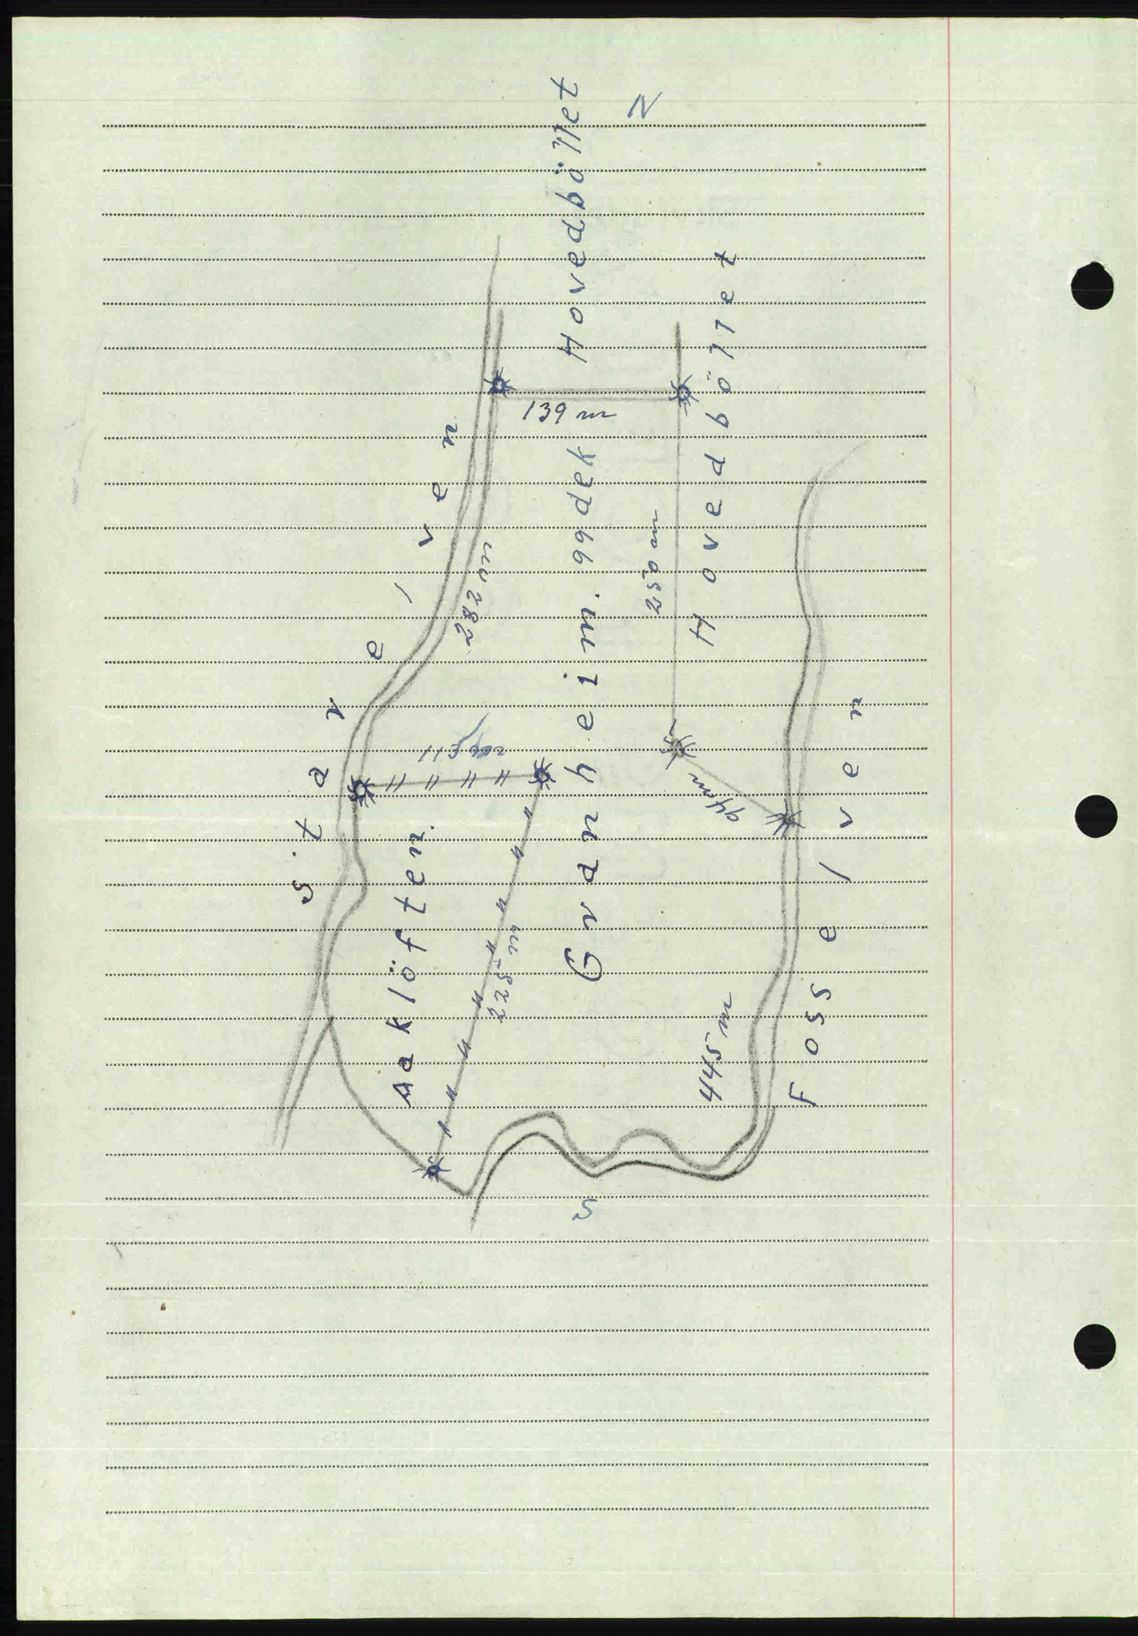 N
Hovedböllet
Starelven
139 m
282 m
Hovedböllet
250 m
Granheim. 99 dek
115 m
94 m
Aaklöften.
225 m
Fosselven
445 m
S